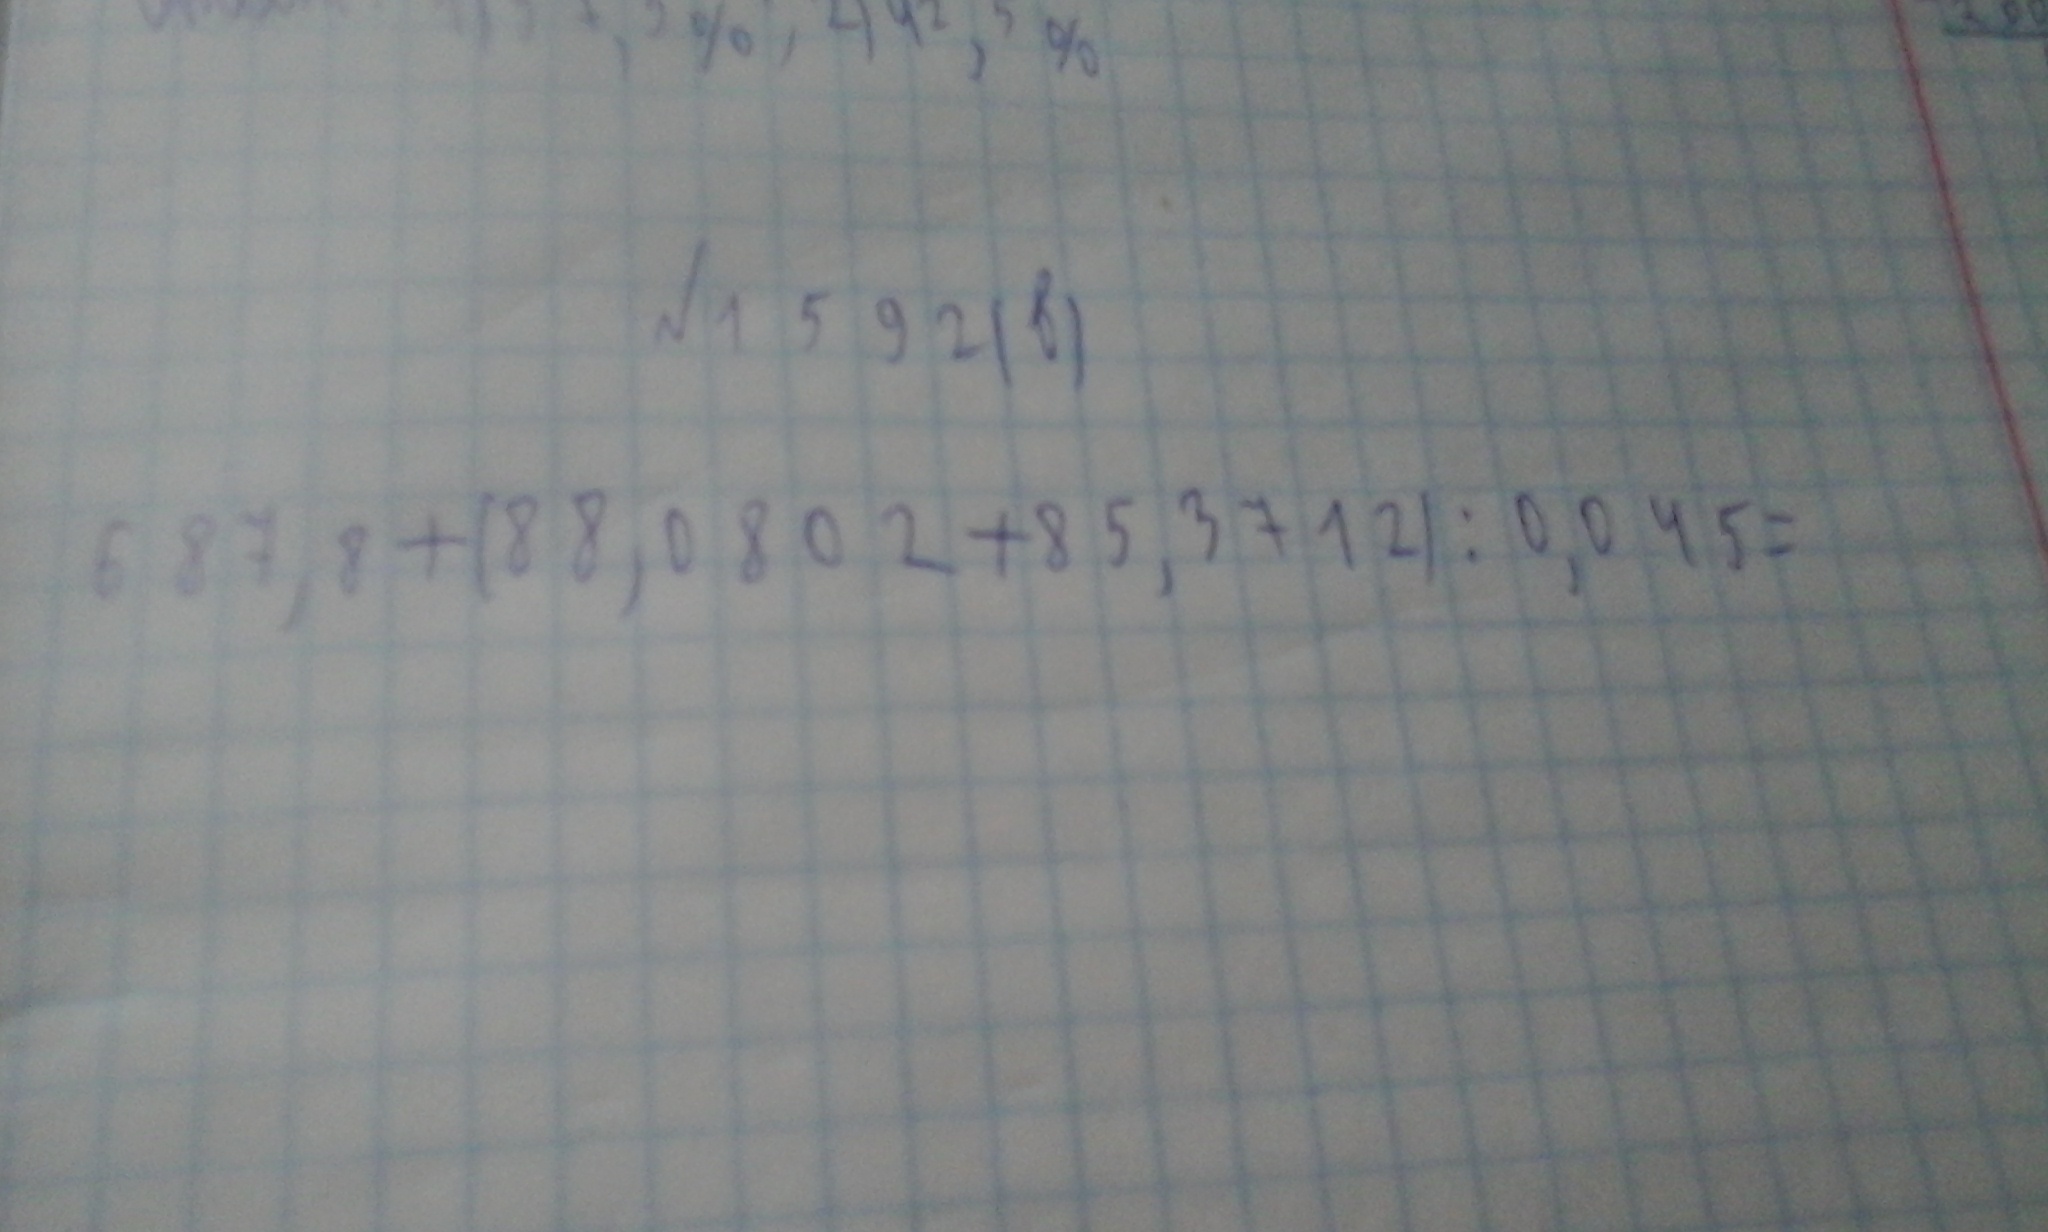 %; 2) 42,5%
√1592(в)
687,8+(88,0802+85,3712):0,045=